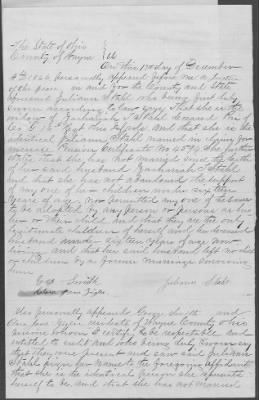 The State of Ohio
County of Wayne } SS
On this 17th day of December
AD 1866 personally appeared before me a Justice
of the peace in and for the County and State
aforesaid Julian Stahl who being first duly
sworn according to law says that she is the
widow of Zachariah Stahl deceased
Co G 16 Regt Ohio and that she is the
identical Julian Stahl named in
pension Certificate No 4094 She further
states that she has not married since the death
of her said husband Zachariah Stahl
and that she has not abandoned the support
of any one of his children under sixteen
years of age nor permitted any one of the same
to be adopted by any person or persons as his
her or their child and that they are the only
legitimate children of herself and her deceased
husband under sixteen years of age now
living and that her said husband left no child
or children by a former marriage surviving
him
Geo Smith
Julian Stahl
Also personally appeared George Smith and
residents of Wayne County Ohio
persons whom I certify to be respectable and
entitled to credit and who being duly sworn say
that they were present and saw said Julian
Stahl sign her name to the foregoing affidavit
that she is the identical person she represents
herself to be and that she has not married